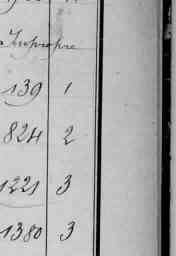 Impropre
139 1
824 2
1221 3
1380 3